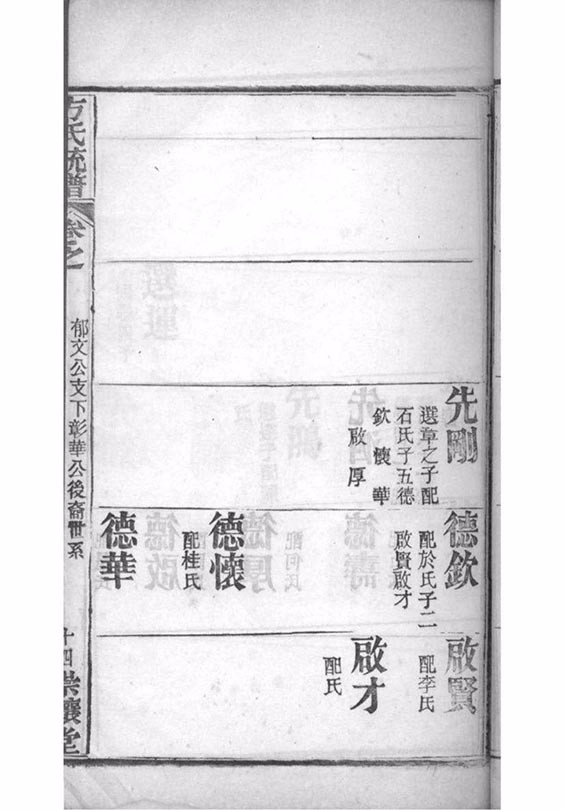 先剛
選章之子配
石氏子五德
欽懷華
啟厚
德欽
配於氏子二
啟賢啟才
德懷
配桂氏
德華
啟賢
配李氏
啟才
配氏
方氏統譜
卷之
郁文公支下彰華公後裔世系
十四
崇讓堂